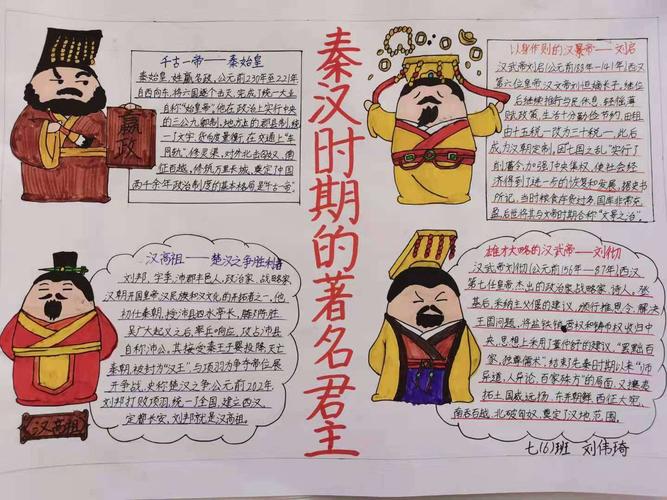 秦汉时期的著名君主
千古一帝——秦始皇
秦始皇,姓嬴名政,公元前230年至221年
自西向东,将六国逐个击灭,完成了统一大业
自称"始皇帝".他在政治上实行中央
的三公九卿制,地方上的郡县制,统
一了文字,货币度量衡,在交通上"车
同轨",修灵渠,对外北击匈奴,南
征百越,修筑万里长城,奠定了中国
两千余年政治制度的基本格局是"千古一帝"
嬴政
以身作则的汉景帝——刘启
汉武帝刘启(公元前188年-141年)西汉
第六位皇帝,汉文帝刘恒嫡长子,继位
后继续推行与民休息,轻徭薄
赋政策,生活十分勤俭节约,田租
由十五税一改为三十税一,此后
成为汉朝定制,因七国之乱"实行了
削藩令,加强了中央集权,使社会经
济得到了进一步的恢复和发展,据史书
所记,当时粮食存货对仓,国库非常充
盈,后世将其与文帝时期合称"文景之治".
汉高祖——楚汉之争胜利者
刘邦,字季,沛郡丰邑人,政治家,战略家
汉朝开国皇帝,汉民族和汉文化的开拓者之一,他
初仕秦朝,授沛县四水亭长,滕陈胜
吴广大起义之后,率丘响应,攻占沛县
自称沛公,其接受秦王子婴投降,灭亡
秦朝,被封为"汉王"与项羽力争夺帝位展
开争战,史称楚汉之争公元前202年
刘邦打败项羽,统一了全国,建立西汉,
定都长安,刘邦就是汉高祖。
汉高祖
雄才大略的汉武帝——刘彻
汉武帝刘彻(公元前156年-87年)西汉
第七任皇帝,杰出的政治家,战略家,诗人,登
基后,采纳主父偃的建议,颁行推恩令,解决
王国问题,将盐铁销权和铸币权收归中
央,思想上采用了董仲舒的建议,"罢黜百
家,独尊儒术"结束了先秦时期以来"师
异道,人异论,百家殊方"的局面,又攘夷
拓土国威远扬,东并朝鲜,西征大宛,
南吞百越,北破匈奴,奠定了汉地范围.
七(6)班 刘伟琦